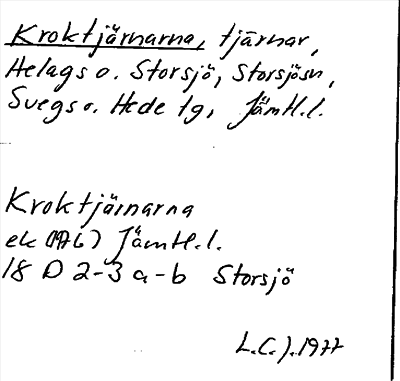 Kroktjärnarna, tjärnar,
Helags o. Storsjö, Storsjösn,
Svegs o. Hede tg, Jämtl.l.
Kroktjärnarna
ek (1976) Jämtl.l.
18 D 2-3 a-b Storsjö
L.C.J. 1977